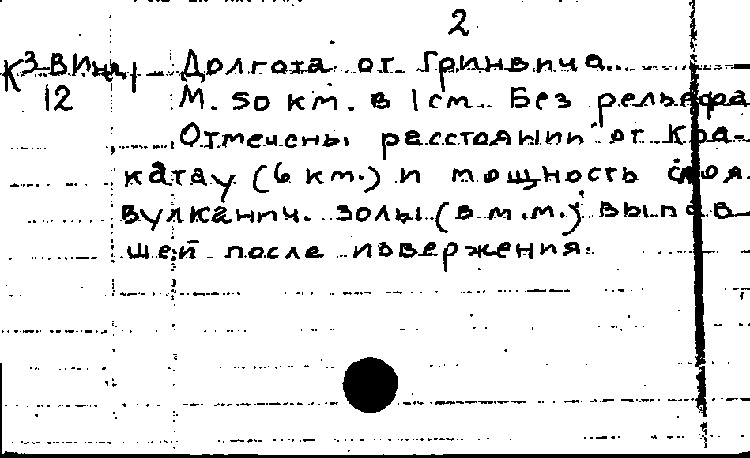 2
К 3-ВИнд Долгота от Гринвича.
12 М. 50 км. в 1 см. Без рельефа
Отмечены расстоянии от Кра-
катау (6 км.) и мощность слоя
вулканич. золы (в м.м.) выпав
шей после извержения.